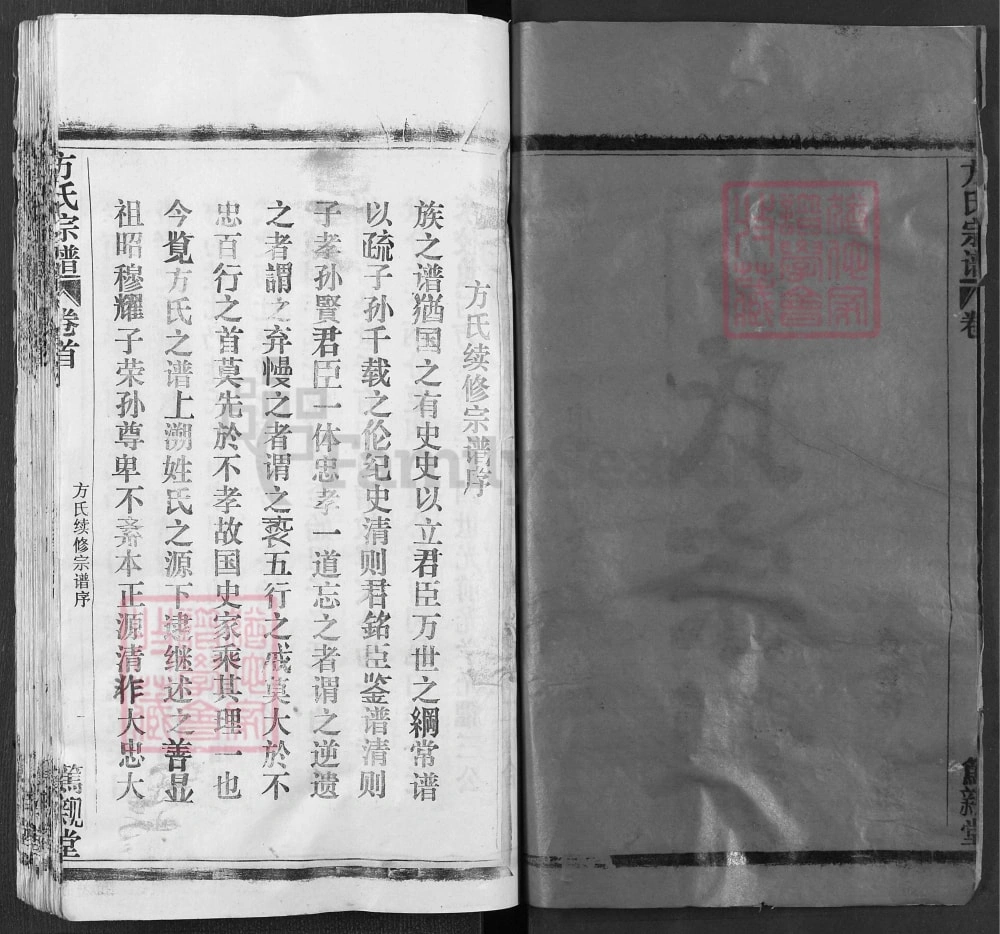 方氏宗谱 卷
篤親堂
方氏续修宗谱序
族之谱猶国之有史史以立君臣万世之綱常谱
以疏子孙千载之伦纪史清则君銘臣鉴谱清则
子孝孙賢君臣一体忠孝一道忘之者谓之逆遗
之者謂之弃慢之者谓之亵五行之成莫大於不
忠百行之首莫先於不孝故国史家乘其理一也
今覧方氏之谱上溯姓氏之源下逮继述之善显
祖昭穆耀子荣孙尊卑不紊本正源清作大忠大
方氏宗谱 卷首
方氏续修宗谱序
一
篤親堂
FamilySearch